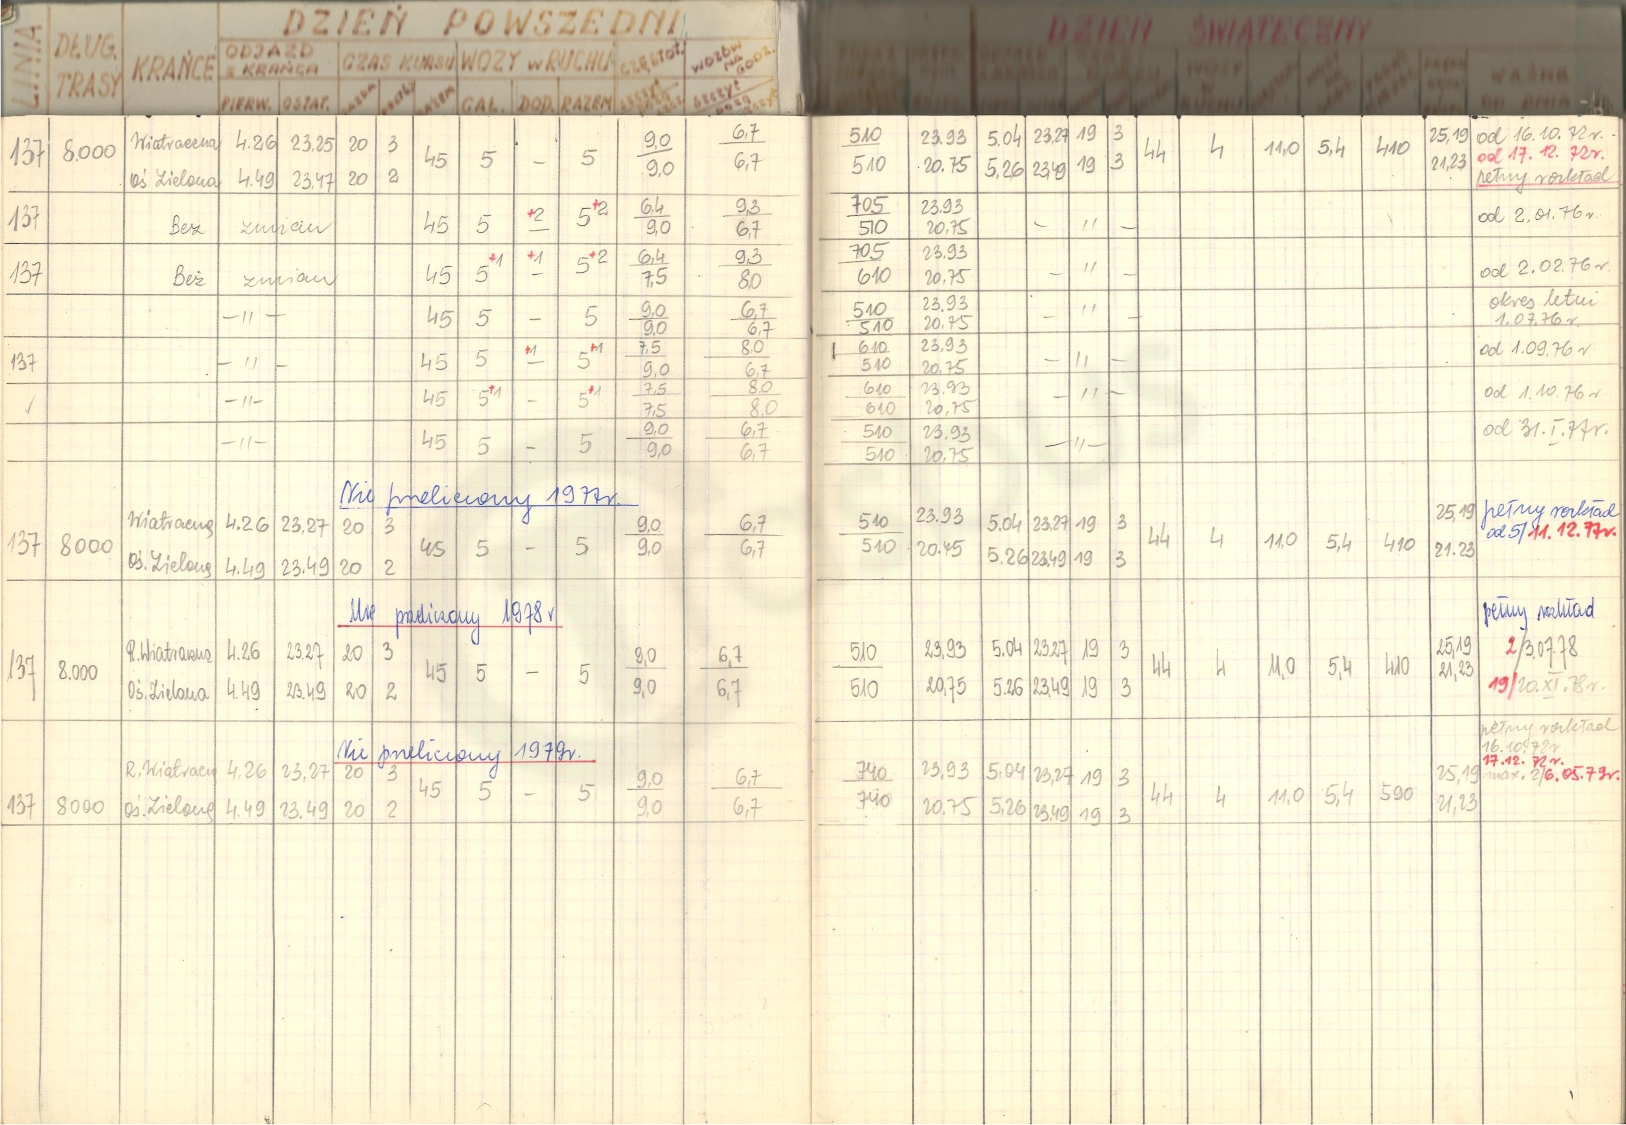 LINIA DŁUG. TRASY KRAŃCE DZIEŃ POWSZEDNI DZIEŃ ŚWIĄTECZNY
ODJAZD z KRAŃCA CZAS KURSU WOZY w RUCHU CZĘSTOT. WOZÓW NA GODZ.
PIERW. OSTAT. RAZEM CAŁ. DOD. RAZEM SZCZYT WAŻNE OD DNIA
137 8.000 Wiatraczna 4.26 23.25 20 3 45 5 – 5 9,0 6,7 510 23.93 5.04 23,27 19 3 44 4 11,0 5,4 410 25,19 od 16.10.72r.
Oś Zielona 4.49 23,47 20 2 9,0 6,7 510 20.75 5,26 23,49 19 3 21,23 od 17.12.72r.
pełny rozkład
137 Bez zmian 45 5 +2 – 5+2 6,4 9,3 705 23.93 – 〃 – od 2.01.76r.
9,0 6,7 510 20,75
137 Bez zmian 45 5+1 +1 – 5+2 6,4 9,3 705 23.93 – 〃 – od 2.02.76r.
7,5 8,0 610 20,75
– 〃 – 45 5 – 5 9,0 6,7 510 23.93 – 〃 – okres letni
9,0 6,7 510 20.75 1.07.76r.
137 – 〃 – 45 5 +1 – 5+1 7,5 8,0 610 23,93 – 〃 – od 1.09.76r
9,0 6,7 510 20,75
– 〃 – 45 5+1 – 5+1 7,5 8,0 610 23.93 – 〃 – od 1.10.76r
7,5 8,0 610 20,75
– 〃 – 45 5 – 5 9,0 6,7 510 23.93 – 〃 – od 31.I.77r.
9,0 6,7 510 20.75
Nie przeliczony 1977r.
137 8000 Wiatraczna 4.26 23,27 20 3 45 5 – 5 9,0 6,7 510 23.93 5.04 23,27 19 3 44 4 11,0 5,4 410 25,19 pełny rozkład
Oś. Zielona 4.49 23.49 20 2 9,0 6,7 510 20.45 5.26 23,49 19 3 21.23 od 5/11.12.77r.
Nie przeliczony 1978r
pełny rozkład
137 8.000 R.Wiatraczna 4.26 23.27 20 3 45 5 – 5 9,0 6,7 510 23,93 5.04 23.27 19 3 44 4 11,0 5,4 410 25,19 2/3.07.78
Oś.Zielona 4.49 23.49 20 2 9,0 6,7 510 20,75 5.26 23,49 19 3 21,23 19/20.XI.78r.
Nie przeliczony 1979r.
pełny rozkład
16.10.72r
17.12.72r.
137 8000 R.Wiatracz 4.26 23,27 20 3 45 5 – 5 9,0 6,7 740 23,93 5.04 23,27 19 3 44 4 11,0 5,4 590 25,19 max. 2/6.05.79r.
Oś.Zielona 4,49 23.49 20 2 9,0 6,7 740 20.75 5,26 23,49 19 3 21,23